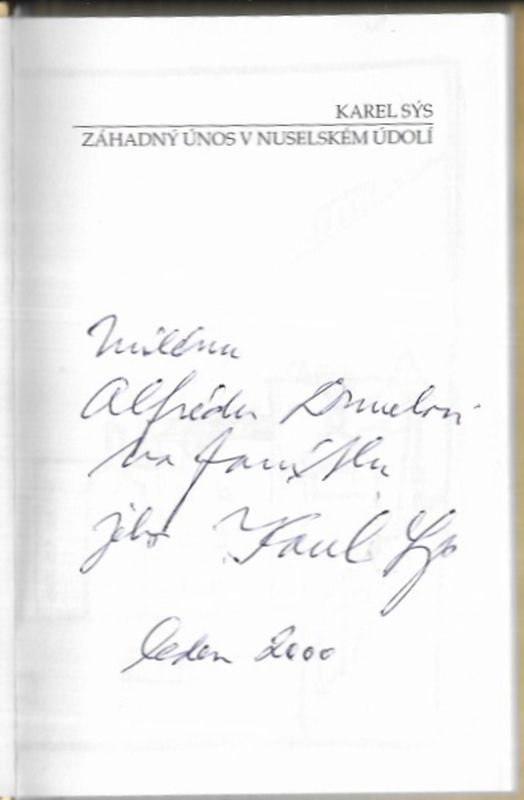 KAREL SÝS
ZÁHADNÝ ÚNOS V NUSELSKÉM ÚDOLÍ
milému
Alfrédu
na památku
jeho Karel Sýs
leden 2000